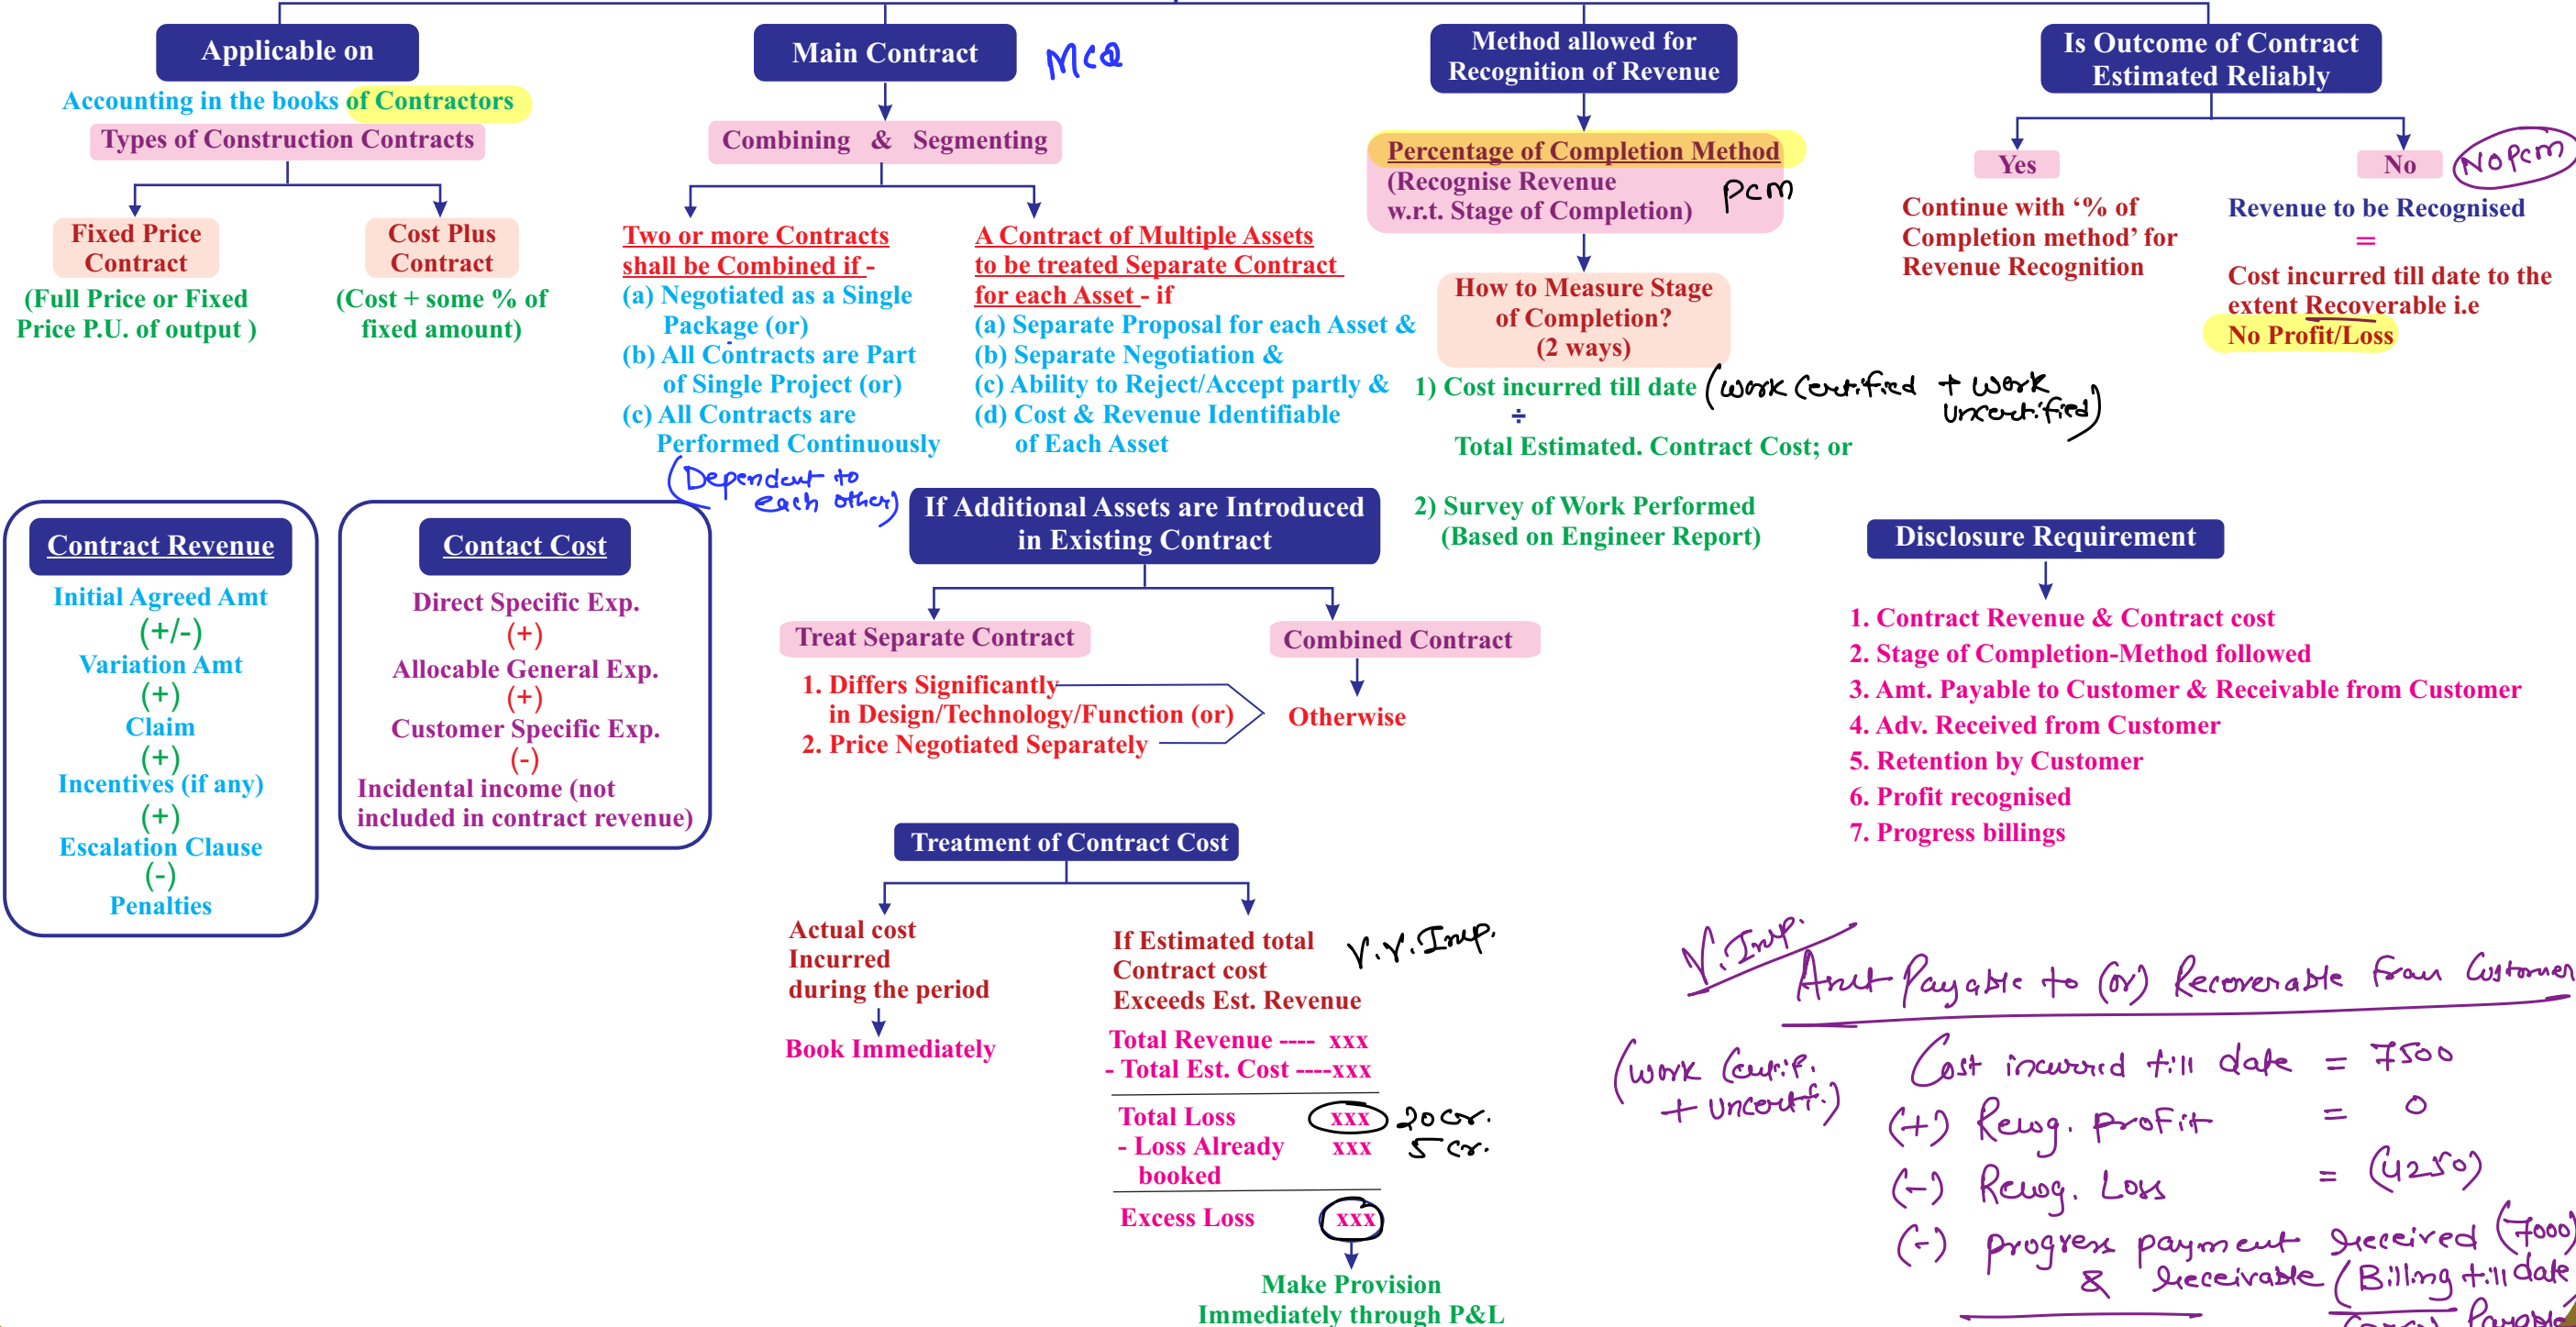 Applicable on
Accounting in the books of Contractors
Types of Construction Contracts
Fixed Price
Contract
(Full Price or Fixed
Price P.U. of output )
Cost Plus
Contract
(Cost + some % of
fixed amount)
Main Contract
MCQ
Combining & Segmenting
Two or more Contracts
shall be Combined if -
(a) Negotiated as a Single
Package (or)
(b) All Contracts are Part
of Single Project (or)
(c) All Contracts are
Performed Continuously
(Dependent to
each other)
A Contract of Multiple Assets
to be treated Separate Contract
for each Asset - if
(a) Separate Proposal for each Asset &
(b) Separate Negotiation &
(c) Ability to Reject/Accept partly &
(d) Cost & Revenue Identifiable
of Each Asset
Method allowed for
Recognition of Revenue
Percentage of Completion Method
(Recognise Revenue
w.r.t. Stage of Completion)
PCM
How to Measure Stage
of Completion?
(2 ways)
1) Cost incurred till date (work Certified + work
uncertified)
÷
Total Estimated. Contract Cost; or
2) Survey of Work Performed
(Based on Engineer Report)
Is Outcome of Contract
Estimated Reliably
Yes
Continue with ‘% of
Completion method’ for
Revenue Recognition
No
No PCM
Revenue to be Recognised
=
Cost incurred till date to the
extent Recoverable i.e
No Profit/Loss
Contract Revenue
Initial Agreed Amt
(+/-)
Variation Amt
(+)
Claim
(+)
Incentives (if any)
(+)
Escalation Clause
(-)
Penalties
Contact Cost
Direct Specific Exp.
(+)
Allocable General Exp.
(+)
Customer Specific Exp.
(-)
Incidental income (not
included in contract revenue)
If Additional Assets are Introduced
in Existing Contract
Treat Separate Contract
1. Differs Significantly
in Design/Technology/Function (or)
2. Price Negotiated Separately
Combined Contract
Otherwise
Disclosure Requirement
1. Contract Revenue & Contract cost
2. Stage of Completion-Method followed
3. Amt. Payable to Customer & Receivable from Customer
4. Adv. Received from Customer
5. Retention by Customer
6. Profit recognised
7. Progress billings
Treatment of Contract Cost
Actual cost
Incurred
during the period
Book Immediately
If Estimated total
Contract cost
Exceeds Est. Revenue
V.V.Imp.
Total Revenue ---- xxx
- Total Est. Cost ----xxx
Total Loss xxx 20 cr.
- Loss Already xxx 5 cr.
booked
Excess Loss xxx
Make Provision
Immediately through P&L
V.Imp.
Amt Payable to (or) Recoverable from Customer
(work Certif.
+ uncertf.)
Cost incurred till date = 7500
(+) Recog. profit = 0
(-) Recog. Loss = (4250)
(-) progress payment received (7000)
& receivable (Billing till date
Payable